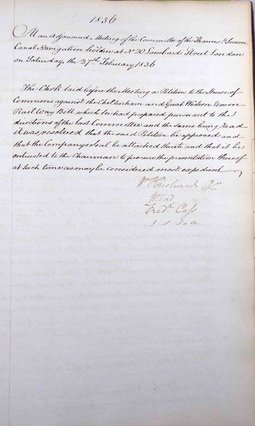 1836
At an Adjourned Meeting of the Committee of the Thames & Severn
Canal Navigation holden at No 20 Lombard Street London
on Saturday the 27th February 1836
The Clerk laid before the Meeting a Petition to the House of
Commons against the Cheltenham and Great Western Union
Rail Way Bill which he had prepared pursuant to the
directions of the last Committee and the same being read
it was resolved that the said Petition be approved and
that the Company's Seal be attached thereto and that it be
entrusted to the Chairman to procure the presentation thereof
at such time as may be considered most expedient